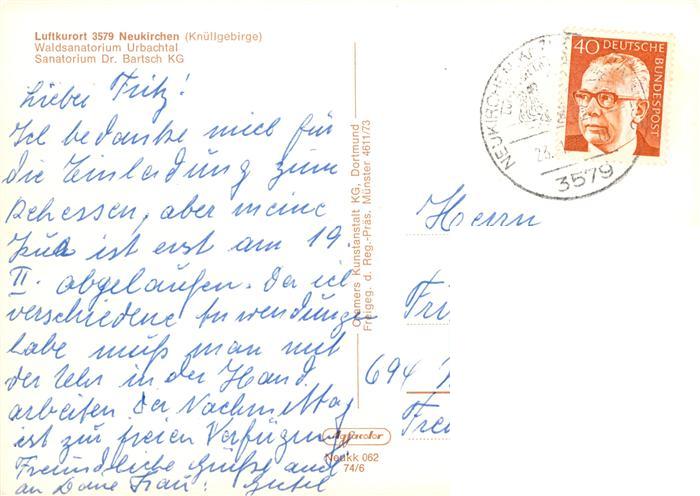 Luftkurort 3579 Neukirchen (Knüllgebirge)
Waldsanatorium Urbachtal
Sanatorium Dr. Bartsch KG
Lieber Fritz!
Ich bedanke mich für
die Einladung zum
Rehessen, aber meine
Kur ist erst am 19.
II. abgelaufen. Da ich
verschiedene Anwendungen
habe muß man mit
der Uhr in der Hand
arbeiten. Der Nachmittag
ist zur freien Verfügung.
Freundliche Grüße auch
an Deine Frau:
Cramers Kunstanstalt KG, Dortmund
Freigeg. d. Reg.-Präs. Münster 4611/73
Neukk 062
74/6
40 DEUTSCHE
BUNDESPOST
NEUKIRCHEN
3579
Herrn
694